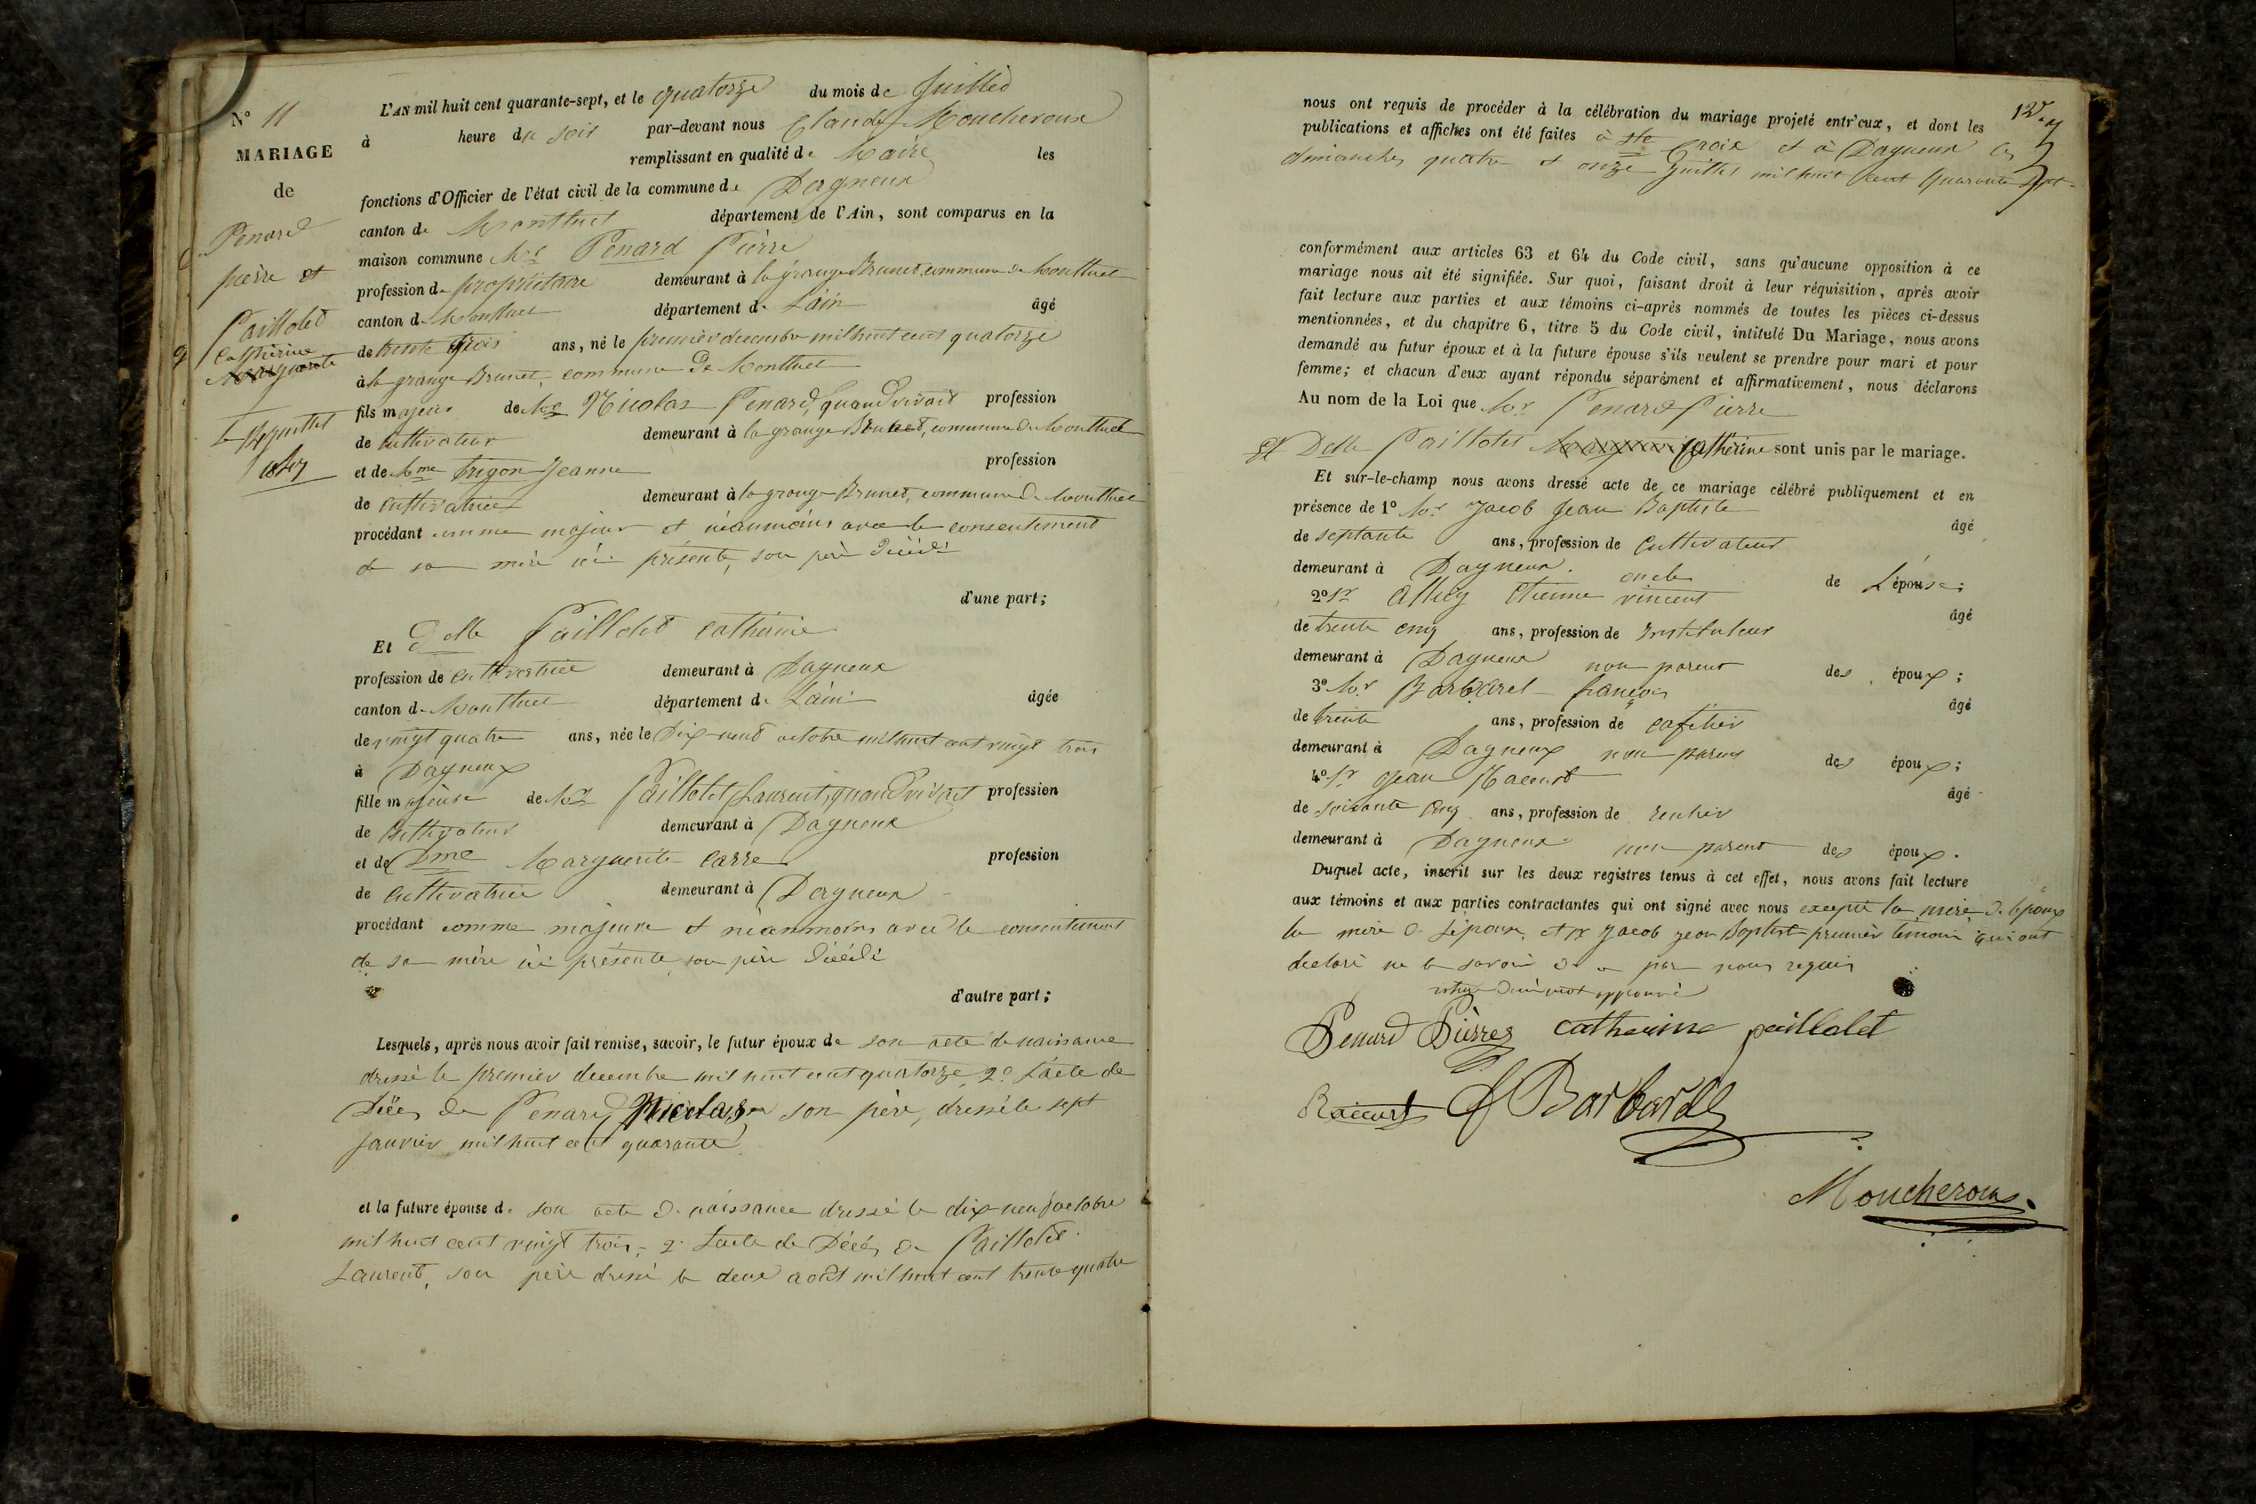 N° 11
MARIAGE
de
Penard
pierre et
Paillolet
Catherine
Marguerite
1847
L'AN mil huit cent quarante-sept, et le quatorze du mois de Juillet
à heure du soir par-devant nous Claude Moucheroux
remplissant en qualité de Maire les
fonctions d'Officier de l'état civil de la commune de Dagneux
canton de Montluel département de l'Ain, sont comparus en la
maison commune Mr Penard Pierre
profession de propriétaire demeurant à la grange Brunet, commune de Montluel
canton de Montluel département de L'ain âgé
de trente trois ans, né le premier decembre mil huit cent quatorze
à la grange Brunet, commune de Montluel
fils majeur de Mr Nicolas Penard, quand vivait profession
de Cultivateur demeurant à la grange Brunet, commune de Montluel
et de Mme Trigon Jeanne profession
de cultivatrice demeurant à la grange Brunet, commune de Montluel
procédant comme majeur et néanmoins avec le consentement
de sa mère ici présente, son père décédé
d'une part;
Et Delle Paillolet Catherine
profession de cultivatrice demeurant à Dagneux
canton de Montluel département de L'ain âgée
de vingt quatre ans, née le Dix-neuf octobre mil huit cent vingt trois
à Dagneux
fille majeure de Mr Paillolet Laurent, quand vivait profession
de Cultivateur demeurant à Dagneux
et de Dme Marguerite Carre profession
de Cultivatrice demeurant à Dagneux
procédant comme majeure et néanmoins avec le consentement
de sa mère ici présente son père décédé
d'autre part;
Lesquels, après nous avoir fait remise, savoir, le futur époux de son acte de naissance
dressé le premier decembre mil huit cent quatorze, 2° L'acte de
Décès de Penard Nicolas son père, dressé le sept
janvier mil huit cent quarante
et la future épouse de son acte de naissance dressé le dix-neuf octobre
mil huit cent vingt trois, 2° L'acte de Décès de Paillolet
Laurent, son père dressé le deux août mil huit cent trente quatre
nous ont requis de procéder à la célébration du mariage projeté entr'eux, et dont les
publications et affiches ont été faites à Ste Croix et à Dagneux les
dimanches quatre et onze Juillet mil huit cent Quarante sept
conformément aux articles 63 et 64 du Code civil, sans qu'aucune opposition à ce
mariage nous ait été signifiée. Sur quoi, faisant droit à leur réquisition, après avoir
fait lecture aux parties et aux témoins ci-après nommés de toutes les pièces ci-dessus
mentionnées, et du chapitre 6, titre 5 du Code civil, intitulé Du Mariage, nous avons
demandé au futur époux et à la future épouse s'ils veulent se prendre pour mari et pour
femme; et chacun d'eux ayant répondu séparément et affirmativement, nous déclarons
Au nom de la Loi que Mr Penard Pierre
Et Delle Paillolet Catherine sont unis par le mariage.
Et sur-le-champ nous avons dressé acte de ce mariage célébré publiquement et en
présence de 1° Mr Jacob Jean Baptiste âgé
de septante ans, profession de Cultivateur
demeurant à Dagneux. oncle de L'épouse;
2° Sr Etienne vincent âgé
de trente cinq ans, profession de Instituteur
demeurant à Dagneux non parent des époux;
3° Mr Barbarel françois âgé
de trente ans, profession de cafetier
demeurant à Dagneux non parent des époux;
4° Sr Jean Racurt âgé
de soixante cinq ans, profession de rentier
demeurant à Dagneux non parent des époux.
Duquel acte, inscrit sur les deux registres tenus à cet effet, nous avons fait lecture
aux témoins et aux parties contractantes qui ont signé avec nous excepté la mère de l'époux
la mère de L'épouse, et Sr Jacob jean Baptiste premier témoin qui ont
declaré ne le savoir de ce par nous requis
Penard Pierres catherine paillolet
Racurt f Barbarel
Moucheroux